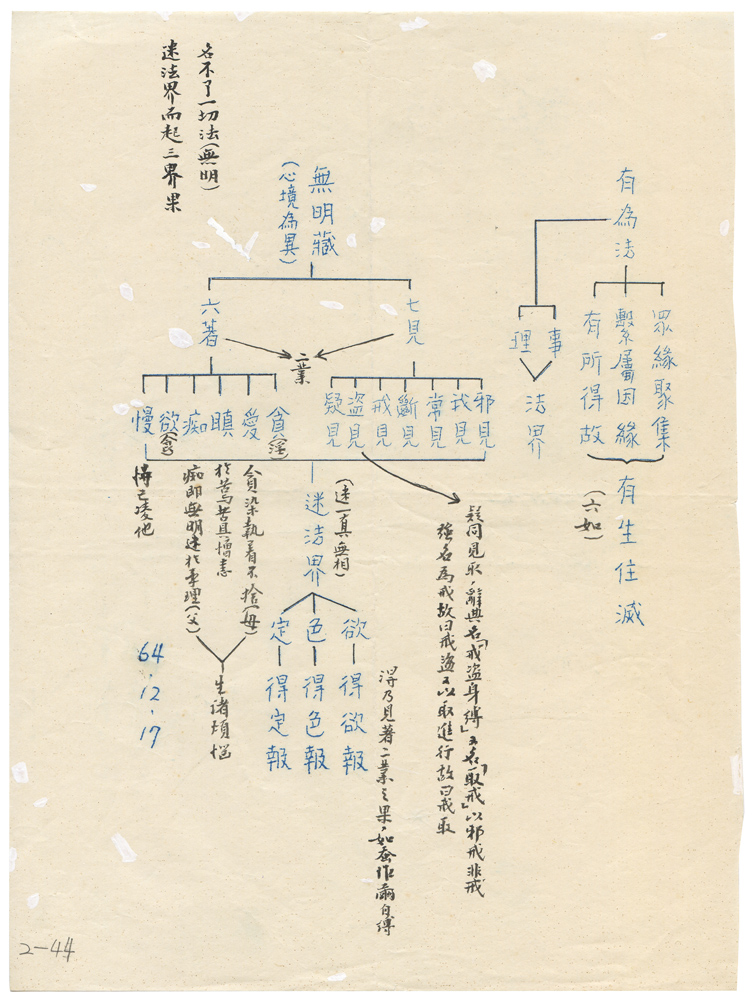 有為法
眾緣聚集
繫屬因緣
有所得故
有生住滅
(六如)
事
理
法界
無明藏
(心境為異)
七見
二業
六著
邪見
我見
常見
斷見
戒見
盜見
疑見
貪(淫)
愛
瞋
痴
欲(貪)
慢
疑同見取,辭典名「戒盜身縛」又名「取戒」以邪戒非戒
強名為戒故曰戒盜又以取進行故曰戒取
(迷一真無相)
迷法界
欲—得欲報
色—得色報
定—得定報
得乃見著二業之果,如蚕作繭自縛
貪染執着不捨(母)
於苦苦具憎恚
痴即無明迷於事理(父)
生諸煩惱
恃己凌他
名不了一切法(無明)
迷法界而起三界果
64.12.17
2-44